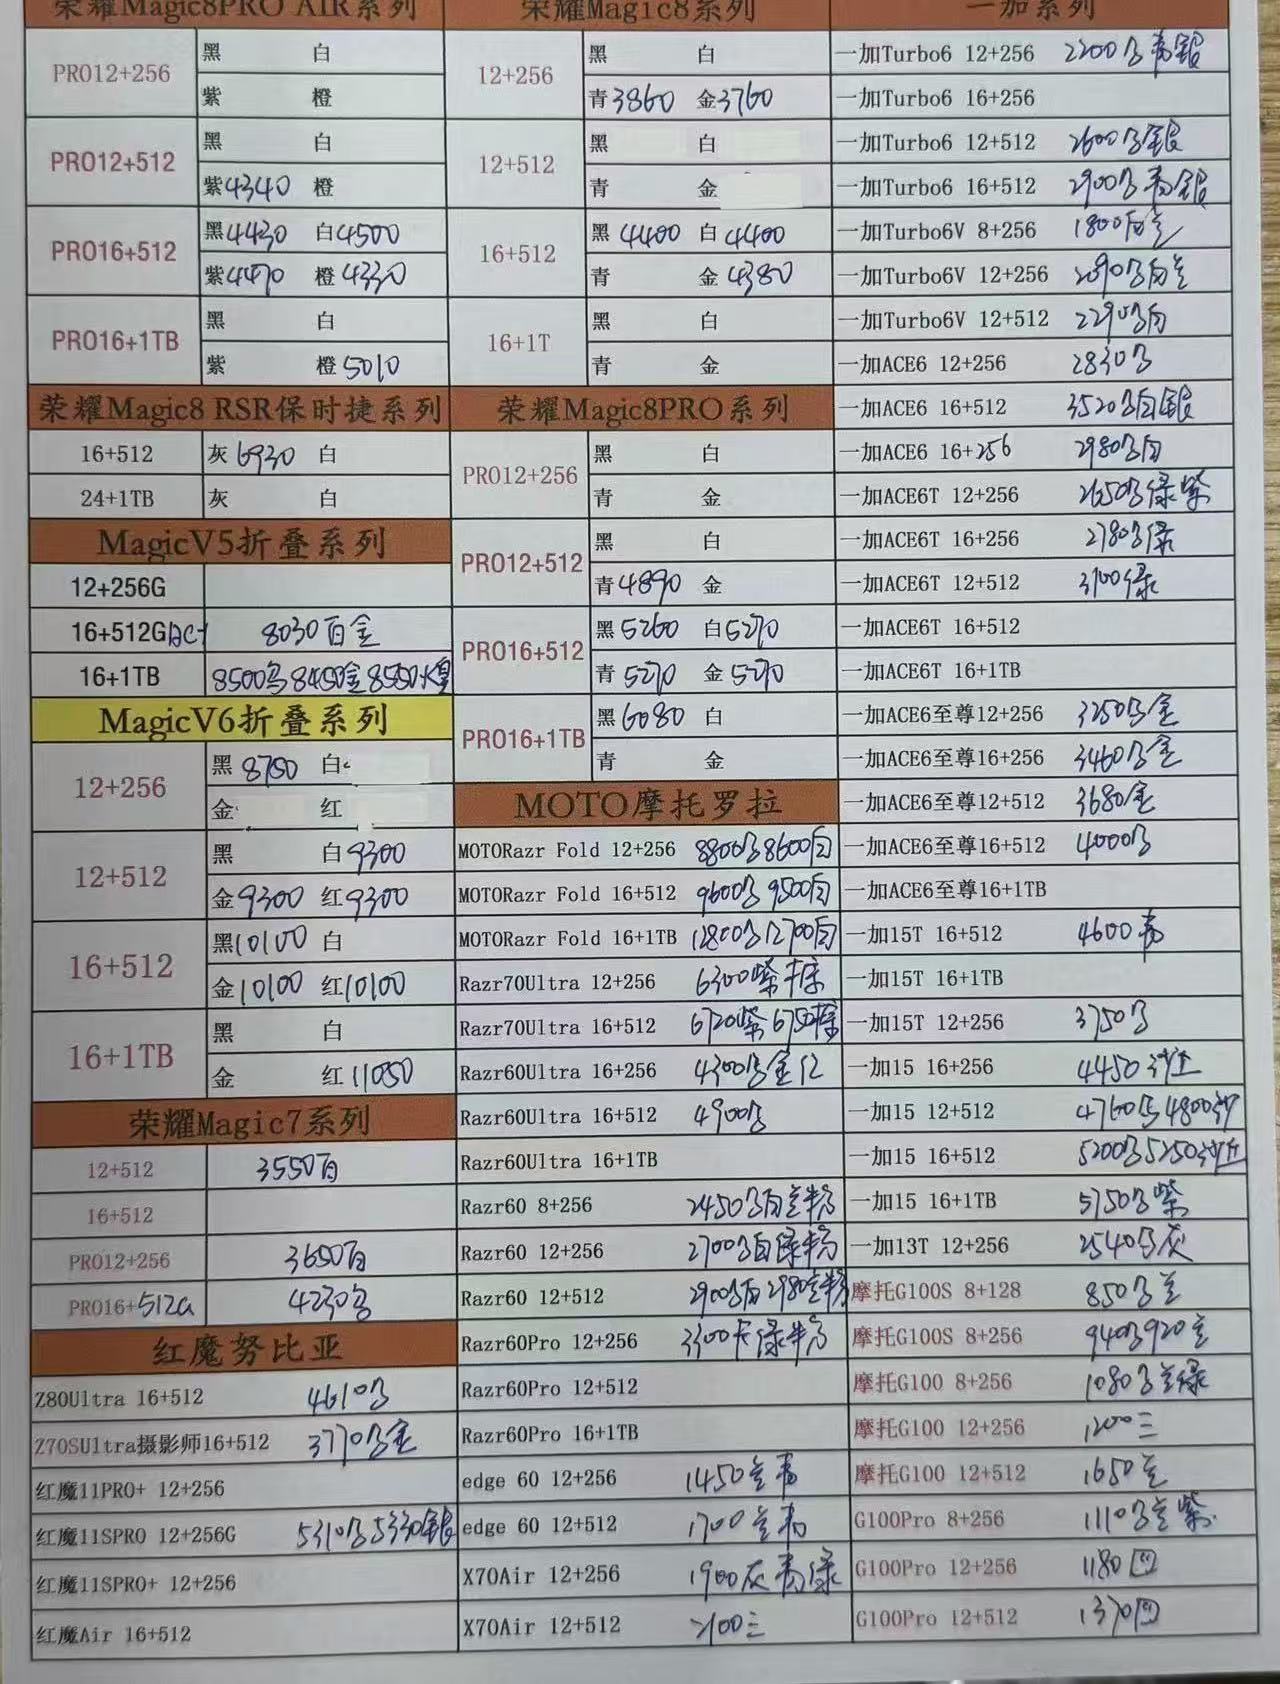 荣耀Magic8PRO AIR系列
PRO12+256
黑 白
紫 橙
PRO12+512
黑 白
紫4340 橙
PRO16+512
黑4430 白4500
紫4470 橙4330
PRO16+1TB
黑 白
紫 橙5010
荣耀Magic8 RSR保时捷系列
16+512 灰6930 白
24+1TB 灰 白
MagicV5折叠系列
12+256G
16+512G 8030百金
16+1TB 8500 8450金8550
MagicV6折叠系列
12+256
黑8750 白
金 红
12+512
黑 白9300
金9300 红9300
16+512
黑10100 白
金10100 红10100
16+1TB
黑 白
金 红11050
荣耀Magic7系列
12+512 3550百
16+512
PRO12+256 3650百
PRO16+512G 4230
红魔努比亚
Z80Ultra 16+512 4610
Z70SUltra摄影师16+512 3770 金
红魔11PRO+ 12+256
红魔11SPRO 12+256G 5310 5330银
红魔11SPRO+ 12+256
红魔Air 16+512
荣耀Magic8系列
12+256
黑 白
青3860 金3760
12+512
黑 白
青 金
16+512
黑4400 白4400
青 金4380
16+1T
黑 白
青 金
荣耀Magic8PRO系列
PRO12+256
黑 白
青 金
PRO12+512
黑 白
青4890 金
PRO16+512
黑5260 白5270
青5270 金5270
PRO16+1TB
黑6080 白
青 金
MOTO摩托罗拉
MOTORazr Fold 12+256 8800 8600白
MOTORazr Fold 16+512 9600 9500白
MOTORazr Fold 16+1TB 12800 12700白
Razr70Ultra 12+256 6300紫
Razr70Ultra 16+512 6720紫6750
Razr60Ultra 16+256 4300 金红
Razr60Ultra 16+512 4900
Razr60Ultra 16+1TB
Razr60 8+256 2450 白 粉
Razr60 12+256 2700 白绿粉
Razr60 12+512 2900 白2980 粉
Razr60Pro 12+256 3300灰绿粉
Razr60Pro 12+512
Razr60Pro 16+1TB
edge 60 12+256 1450 青
edge 60 12+512 1700 青
X70Air 12+256 1900灰青绿
X70Air 12+512 2100三
一加系列
一加Turbo6 12+256 2200 青银
一加Turbo6 16+256
一加Turbo6 12+512 2600 银
一加Turbo6 16+512 2900 青银
一加Turbo6V 8+256 1800白
一加Turbo6V 12+256 2090 白
一加Turbo6V 12+512 2290 白
一加ACE6 12+256 2830
一加ACE6 16+512 3520 白银
一加ACE6 16+256 2980 白
一加ACE6T 12+256 2650 绿紫
一加ACE6T 16+256 2780 绿
一加ACE6T 12+512 3100绿
一加ACE6T 16+512
一加ACE6T 16+1TB
一加ACE6至尊12+256 3250 金
一加ACE6至尊16+256 3460 金
一加ACE6至尊12+512 3680金
一加ACE6至尊16+512 4000
一加ACE6至尊16+1TB
一加15T 16+512 4600青
一加15T 16+1TB
一加15T 12+256 3750
一加15 16+256 4450
一加15 12+512 4760 4800
一加15 16+512 5200 5250
一加15 16+1TB 5750 紫
一加13T 12+256 2540 灰
摩托G100S 8+128 850
摩托G100S 8+256 940 920
摩托G100 8+256 1080 绿
摩托G100 12+256 1200三
摩托G100 12+512 1650
G100Pro 8+256 1110 紫
G100Pro 12+256 1180四
G100Pro 12+512 1370四